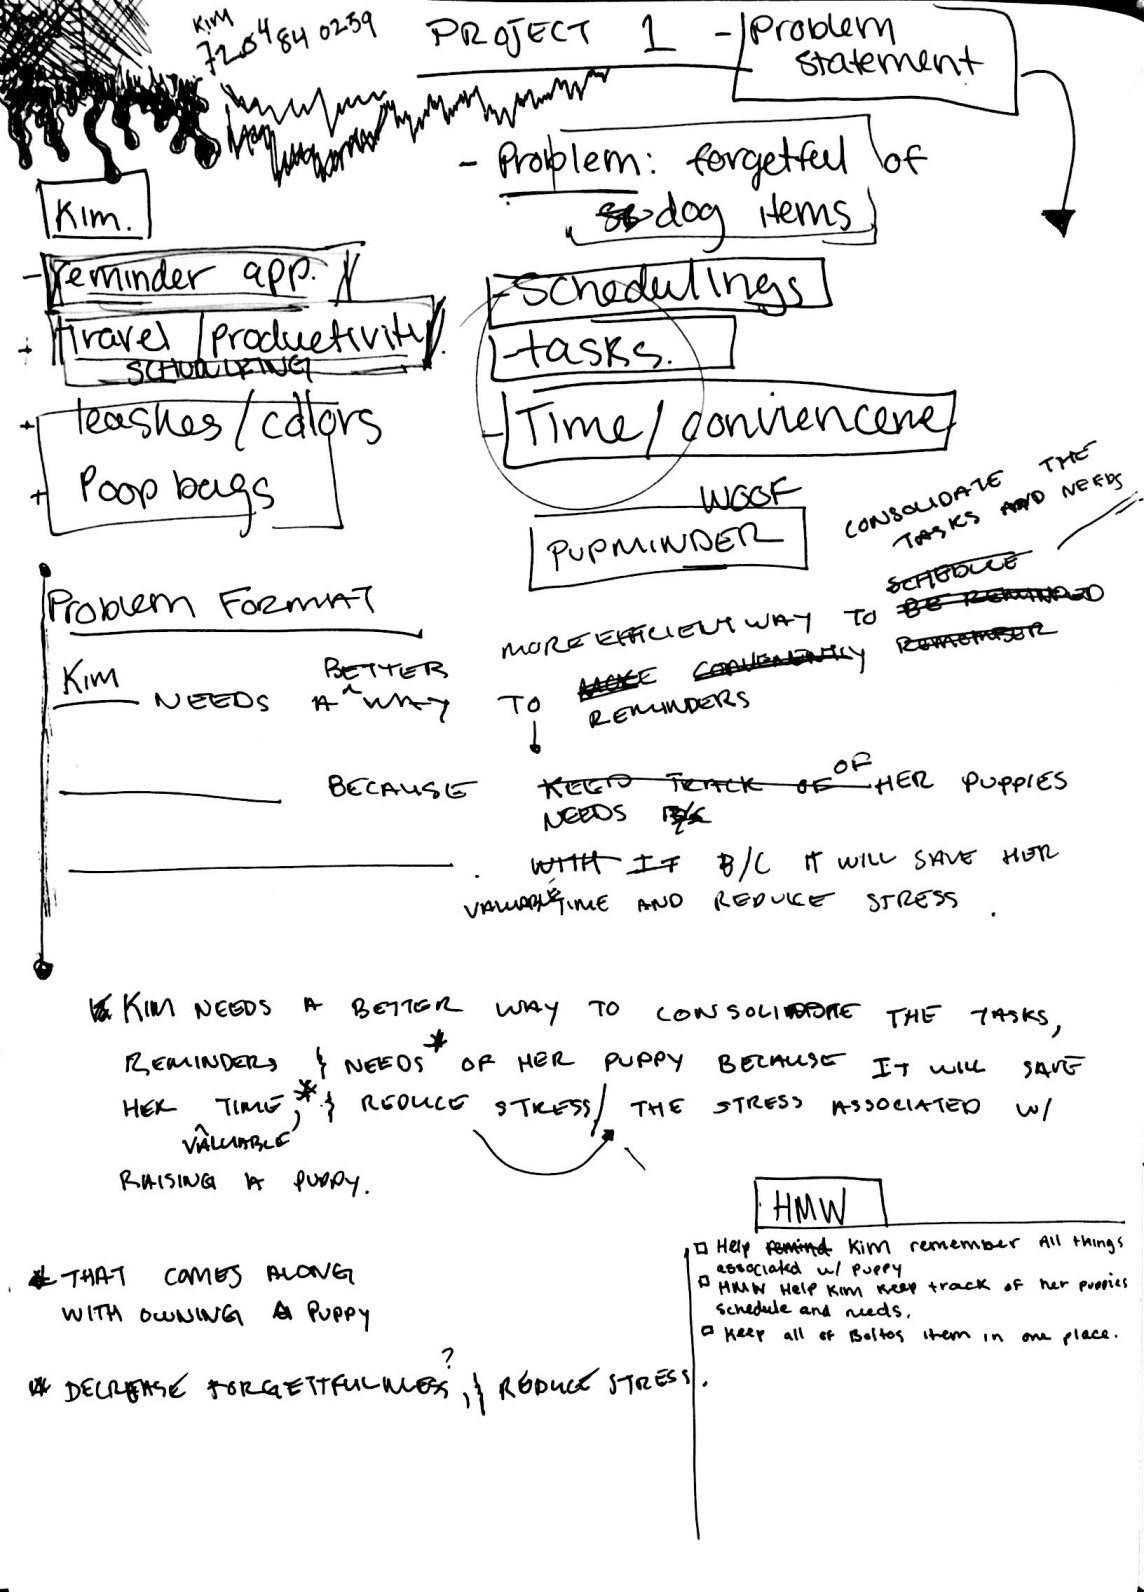 KIM
720 484 0259
PROJECT 1 - Problem
statement
- Problem: forgetful of
dog items
Kim.
- reminder app.
+ travel/productivity
SCHEDULING
+ leashes/collors
+ Poop bags
- Schedulings
- tasks.
- Time/convienence
WOOF
PUPMINDER
CONSOLIDATE THE
TASKS AND NEEDS
Problem FORMAT
SCHEDULE
MORE EFFICIENT WAY TO BE REMINDED
Kim NEEDS A BETTER WAY TO MAKE CONVENIENTLY REMEMBER
REMINDERS
BECAUSE KEEP TRACK OF OF HER PUPPIES
NEEDS B/C
WITH IT B/C IT WILL SAVE HER
VALUABLE TIME AND REDUCE STRESS.
KIM NEEDS A BETTER WAY TO CONSOLIDATE THE TASKS,
REMINDERS & NEEDS* OF HER PUPPY BECAUSE IT WILL SAVE
HER TIME,* & REDUCE STRESS/ THE STRESS ASSOCIATED W/
VALUABLE
RAISING A PUPPY.
* THAT COMES ALONG
WITH OWNING A PUPPY
* DECREASE FORGETTFULNLESS?, & REDUCE STRESS.
HMW
Help remind Kim remember All things
associated w/ puppy
HMW Help Kim keep track of her puppies
schedule and needs.
Keep all of Boltos item in one place.